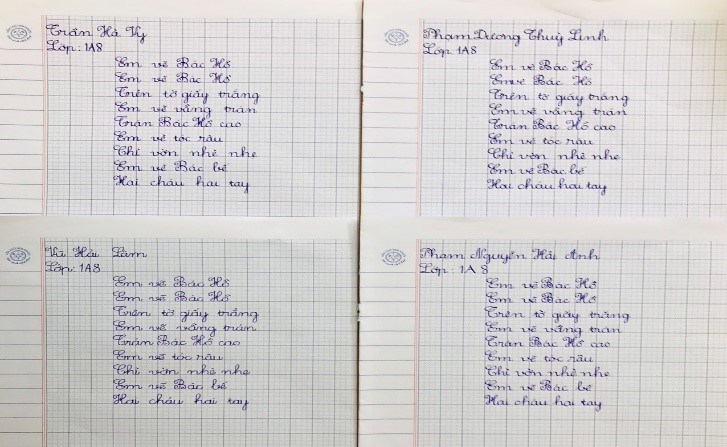 Trần Hà Vy
Lớp: 1A8
Em vẽ Bác Hồ
Em vẽ Bác Hồ
Trên tờ giấy trắng
Em vẽ vầng trán
Trán Bác Hồ cao
Em vẽ tóc râu
Chỉ vờn nhè nhẹ
Em vẽ Bác bế
Hai cháu hai tay
Phạm Dương Thuỳ Linh
Lớp: 1A8
Em vẽ Bác Hồ
Em vẽ Bác Hồ
Trên tờ giấy trắng
Em vẽ vầng trán
Trán Bác Hồ cao
Em vẽ tóc râu
Chỉ vờn nhè nhẹ
Em vẽ Bác bế
Hai cháu hai tay
Vũ Hải Lâm
Lớp: 1A8
Em vẽ Bác Hồ
Em vẽ Bác Hồ
Trên tờ giấy trắng
Em vẽ vầng trán
Trán Bác Hồ cao
Em vẽ tóc râu
Chỉ vờn nhè nhẹ
Em vẽ Bác bế
Hai cháu hai tay
Phạm Nguyên Hải Anh
Lớp: 1A8
Em vẽ Bác Hồ
Em vẽ Bác Hồ
Trên tờ giấy trắng
Em vẽ vầng trán
Trán Bác Hồ cao
Em vẽ tóc râu
Chỉ vờn nhè nhẹ
Em vẽ Bác bế
Hai cháu hai tay